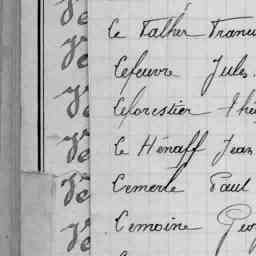 Le Falher Franc
Lefeuvre Jules
Leforestier Th
Le Hénaff Jean
Lemerle Paul
Lemoine Geo